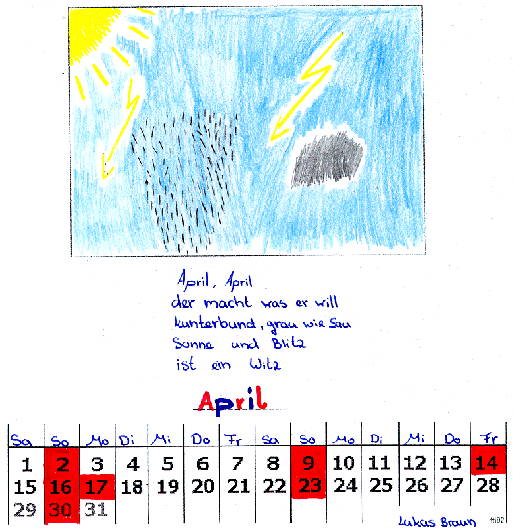 April, April
der macht was er will
kunterbund, grau wie Sau
Sonne und Blitz
ist ein Witz
April
Sa So Mo Di Mi Do Fr Sa So Mo Di Mi Do Fr
1 2 3 4 5 6 7 8 9 10 11 12 13 14
15 16 17 18 19 20 21 22 23 24 25 26 27 28
29 30 31
Lukas Braun